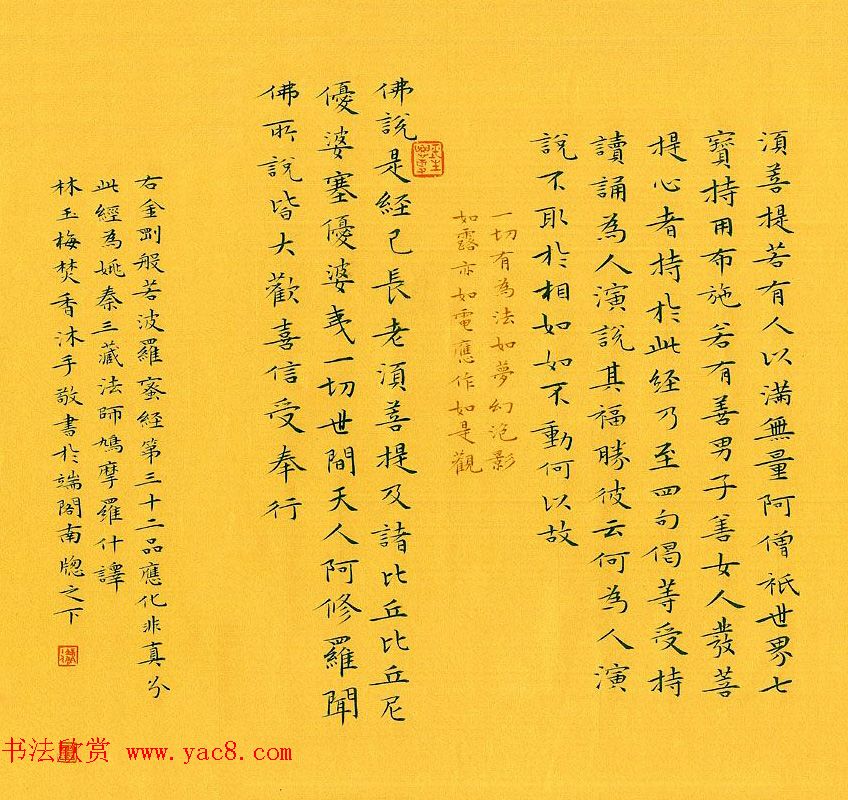 須菩提若有人以滿無量阿僧祇世界七
寶持用布施若有善男子善女人發菩
提心者持於此経乃至四句偈等受持
讀誦為人演說其福勝彼云何為人演
說不取於相如如不動何以故
一切有為法如夢幻泡影
如露亦如電應作如是觀
佛說是経已長老須菩提及諸比丘比丘尼
優婆塞優婆夷一切世間天人阿修羅聞
佛所說皆大歡喜信受奉行
右金剛般若波羅蜜経第三十二品應化非真分
此経為姚秦三藏法師鳩摩羅什譯
林玉梅焚香沐手敬書於端閣南牕之下
书法欣赏 www.yac8.com